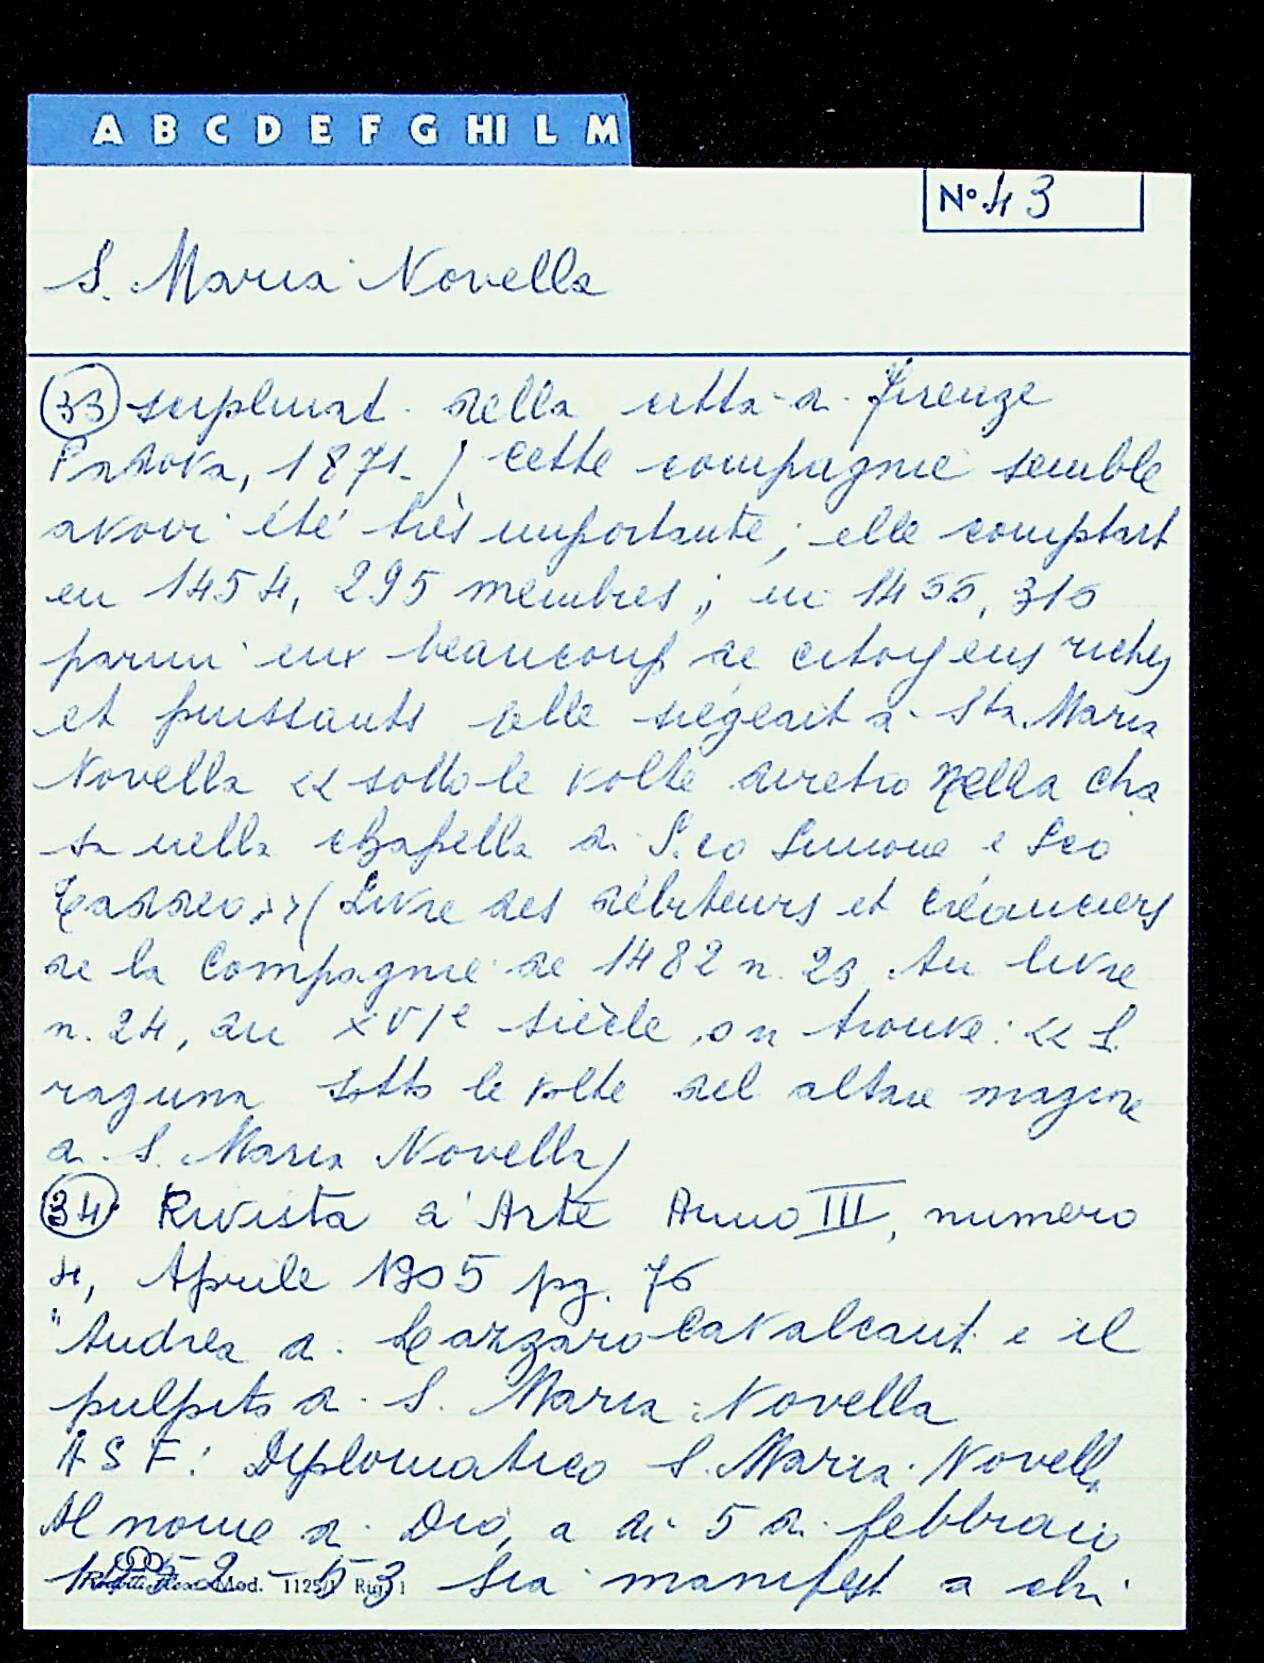 A B C D E F G HI L M
N° 43
S. Maria Novella
(33) supplicat. della citta di Firenze
Padova, 1871.) Cette compagnie semble
avoir été très importante; elle comptait
en 1454, 295 membres; en 1455, 316
parmi eux beaucoup de citoyens riches
et puissants elle siégeait a Sta Maria
Novella << sotto le volte dirieto nella chie
sa nella chapella di S.co Simone e Sco
Taddeo >> (Livre des débiteurs et créanciers
de la Compagnie de 1482 n. 23 Au livre
n. 24, du XVIe siècle on trouve: << S.
raguna sotto le volte del altare magore
di S. Maria Novella)
(34) Rivista d'Arte Anno III, numero
4, Aprile 1905 pg. 76
"Andrea di Lazzaro Cavalcanti e il
pulpito di S. Maria Novella
ASF: Diplomatico S. Maria Novella
Al nome di Dio, a di 5 di febbraio
Mod. 1125/1 Rig. 1 Sia manifest a chi